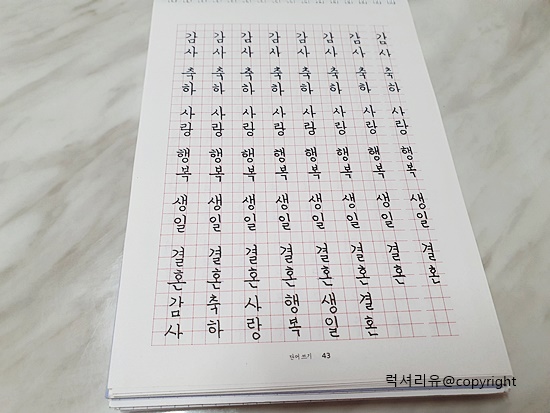 감사 감사 감사 감사 감사 감사 감사 감사
축하 축하 축하 축하 축하 축하 축하 축하
사랑 사랑 사랑 사랑 사랑 사랑 사랑 사랑
행복 행복 행복 행복 행복 행복 행복 행복
생일 생일 생일 생일 생일 생일 생일 생일
결혼 결혼 결혼 결혼 결혼 결혼 결혼 결혼
감사 축하 사랑 행복 생일 결혼
단어 쓰기 43
럭셔리유@copyright